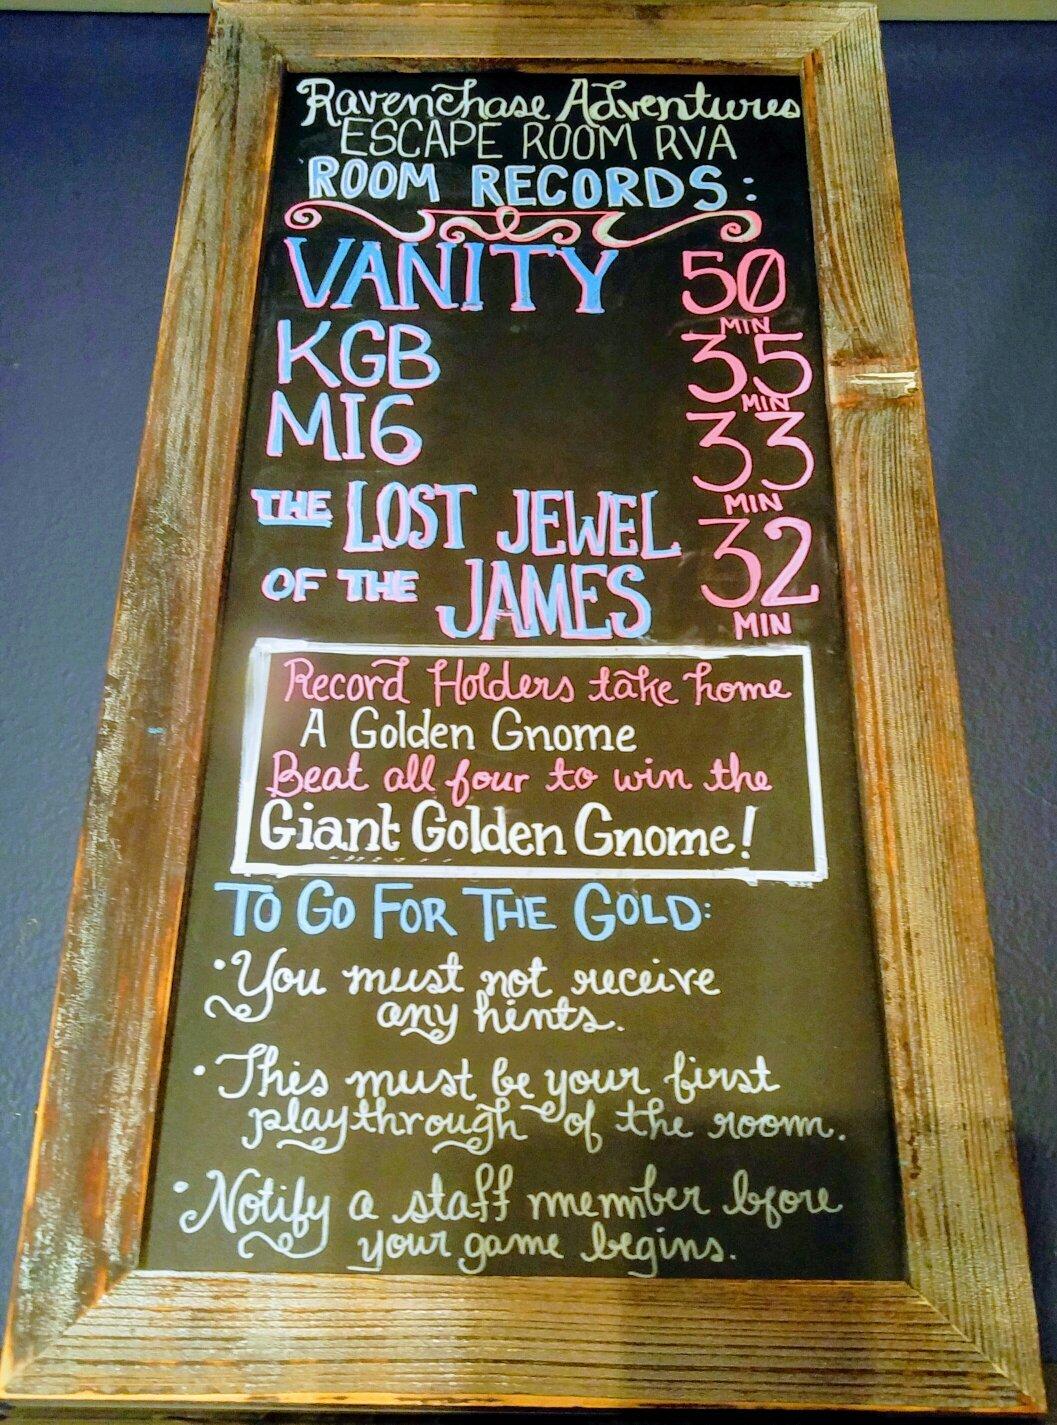 Ravenchase Adventures
ESCAPE ROOM RVA
ROOM RECORDS:
VANITY 50 MIN
KGB 35 MIN
MI6 33 MIN
THE LOST JEWEL
OF THE JAMES 32 MIN
Record Holders take home
A Golden Gnome
Beat all four to win the
Giant Golden Gnome!
TO GO FOR THE GOLD:
• You must not receive
any hints.
• This must be your first
playthrough of the room.
• Notify a staff member before
your game begins.